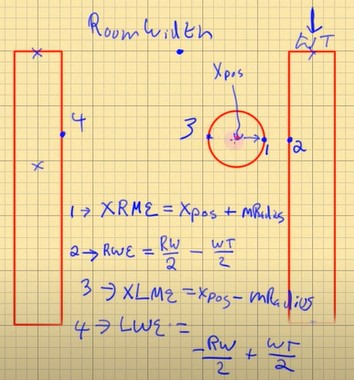 RoomWidth
WT
Xpos
4
3
1
2
1 → XRME = Xpos + mRadius
2 → RWE = RW/2 - WT/2
3 → XLME = Xpos - mRadius
4 → LWE = -RW/2 + WT/2